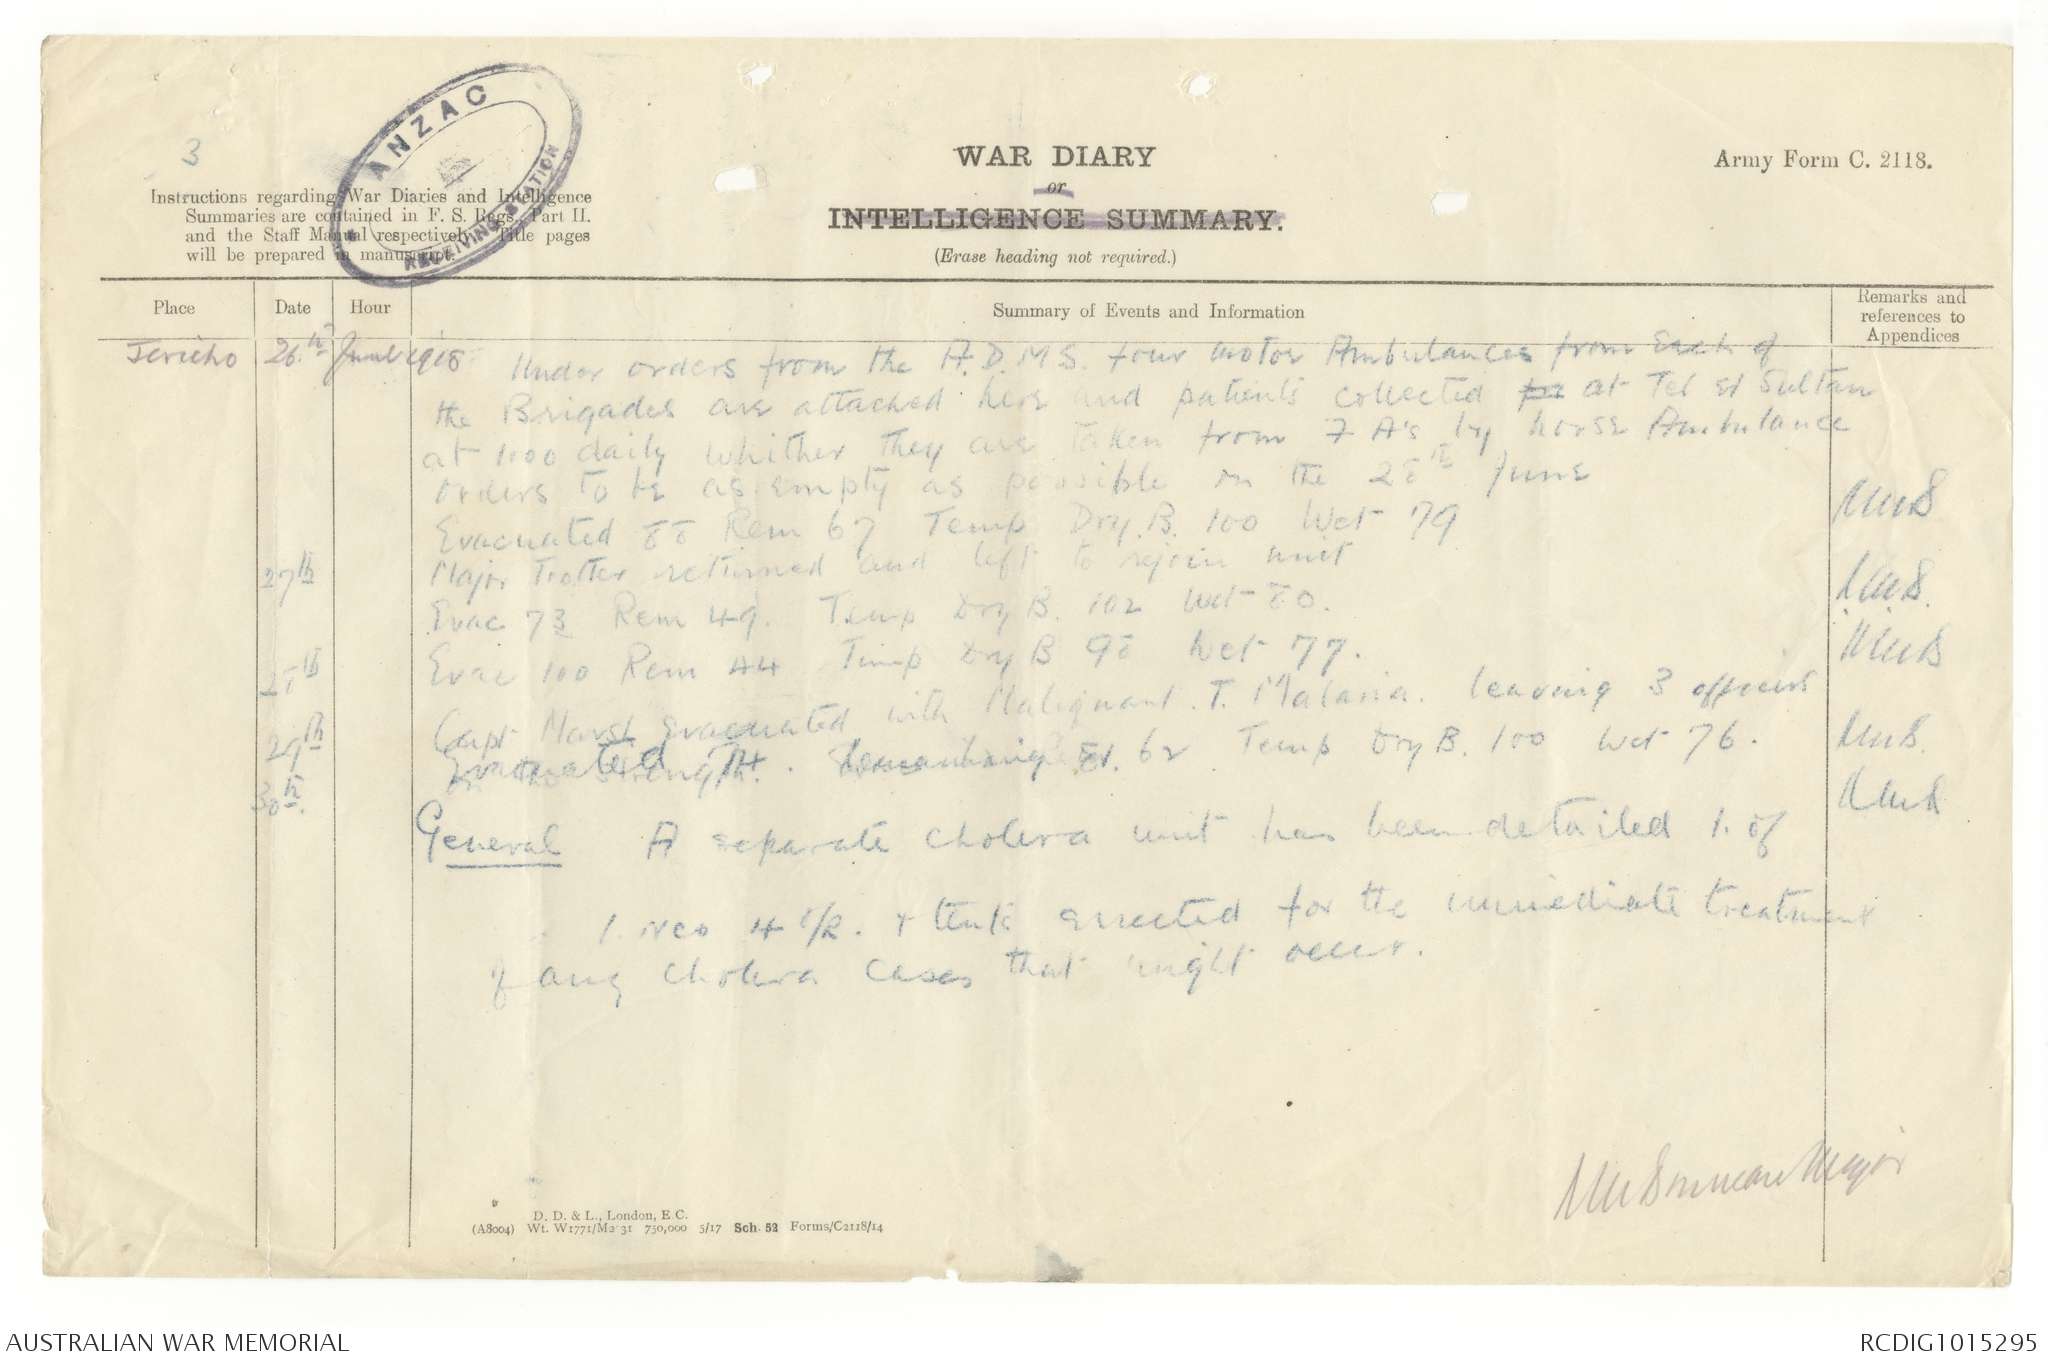 3
ANZAC
RECEIVING STATION
Instructions regarding War Diaries and Intelligence
Summaries are contained in F. S. Regs., Part II.
and the Staff Manual respectively. Title pages
will be prepared in manuscript.
WAR DIARY
or
INTELLIGENCE SUMMARY.
(Erase heading not required.)
Army Form C. 2118.
Place Date Hour Summary of Events and Information Remarks and references to Appendices
Jericho 26th June 1918 Under orders from the A.D.M.S. four motor Ambulances from Each of
the Brigades are attached here and patients collected at Tel el Sultan
at 1100 daily whither they are taken from F A's by horse Ambulance
orders to be as empty as possible on the 28th June
Evacuated 88 Rem 67 Temp Dry. B. 100 Wet 79
27th Major Trotter returned and left to rejoin unit
Evac 73 Rem 49. Temp Dry B. 102 Wet 80.
28th Evac 100 Rem 44 Temp Dry B 98 Wet 77.
29th Capt Marsh evacuated with Malignant. T. Malaria. leaving 3 officers
on the strength.
30th. Evacuated 74. Remaining 62 Temp Dry B. 100 Wet 76.
General A separate cholera unit has been detailed 1. of
1. NCO 4 O/R. & tents errected for the immediate treatment
of any cholera cases that might occur.
Major
D. D. & L., London, E.C.
(A8004) Wt. W1771/M2 31 750,000 5/17 Sch. 52 Forms/C2118/14
AUSTRALIAN WAR MEMORIAL
RCDIG1015295